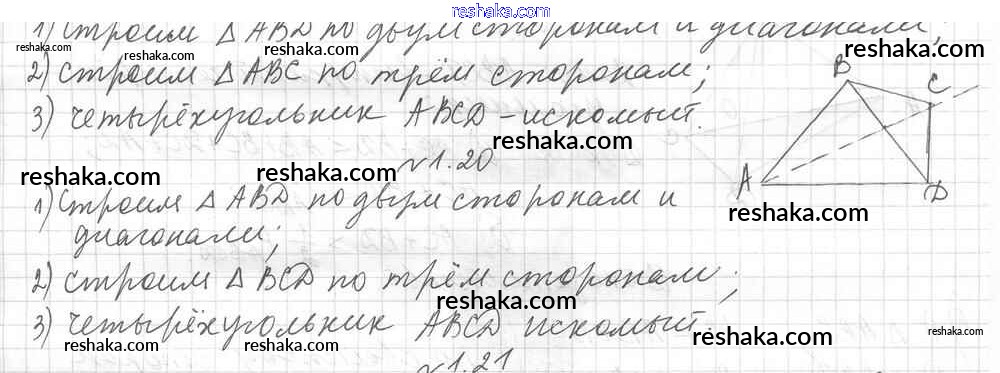 reshaka.com
1) Строим △ ABD по двум сторонам и диагонали;
reshaka.com
reshaka.com
reshaka.com
reshaka.com
B
2) строим △ ABC по трём сторонам;
C
3) четырёхугольник ABCD – искомый.
reshaka.com
reshaka.com
reshaka.com
reshaka.com
№1.20
reshaka.com
reshaka.com
A
D
1) Строим △ ABD по двум сторонам и
reshaka.com
диагонали;
2) строим △ BCD по трём сторонам;
reshaka.com
3) четырёхугольник ABCD искомый.
reshaka.com
reshaka.com
reshaka.com
reshaka.com
reshaka.com
№1.21